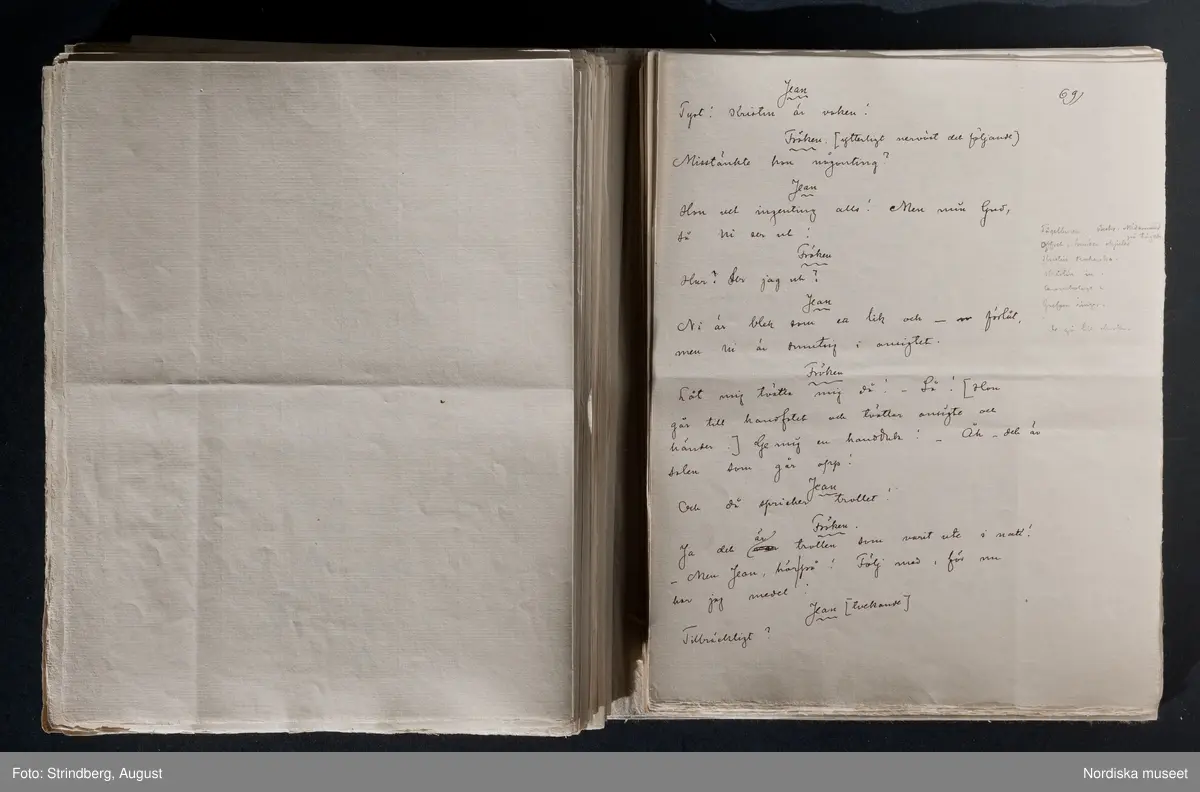 69)
Jean
Tyst! Kristin är vaken!
Fröken. [ytterligt nervöst det följande)
Misstänkte hon någonting?
Jean
Hon vet ingenting alls! Men min Gud,
så Ni ser ut!
Fröken
Hur? Ser jag ut?
Jean
Ni är blek som ett lik och — förlåt,
men Ni är smutsig i ansigtet.
Fröken
Låt mig tvätta mig då! – Så! [Hon
går till handfatet och tvättar ansigte och
händer.] Ge mig en handduk! – Åh – det är
solen som går opp!
Jean
Och då spricker trollet!
Fröken.
Ja det är trollen som varit ute i natt!
– Men Jean, hör på! Följ med, för nu
har jag medel!
Jean [tvekande]
Tillräckligt?
Kristin
in.
Foto: Strindberg, August
Nordiska museet